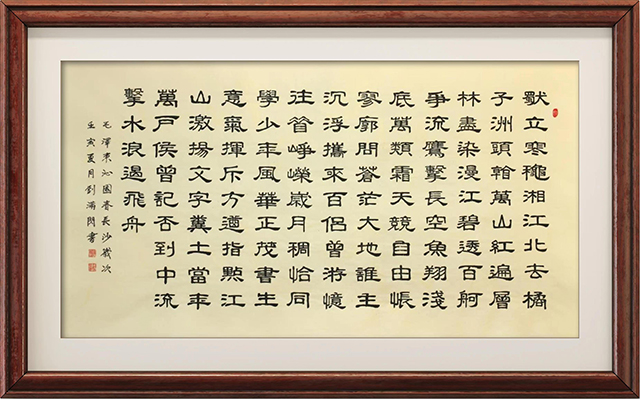 獨立寒穐湘江北去橘
子洲頭看萬山紅遍層
林盡染漫江碧透百舸
爭流鷹擊長空魚翔淺
底萬類霜天競自由悵
寥廓問蒼茫大地誰主
沉浮攜來百侶曾游憶
往昔崢嶸歲月稠恰同
學少年風華正茂書生
意氣揮斥方遒指點江
山激揚文字糞土當年
萬戶侯曾記否到中流
擊水浪遏飛舟
毛澤東沁園春長沙歲次
壬寅夏月劉滿閃書